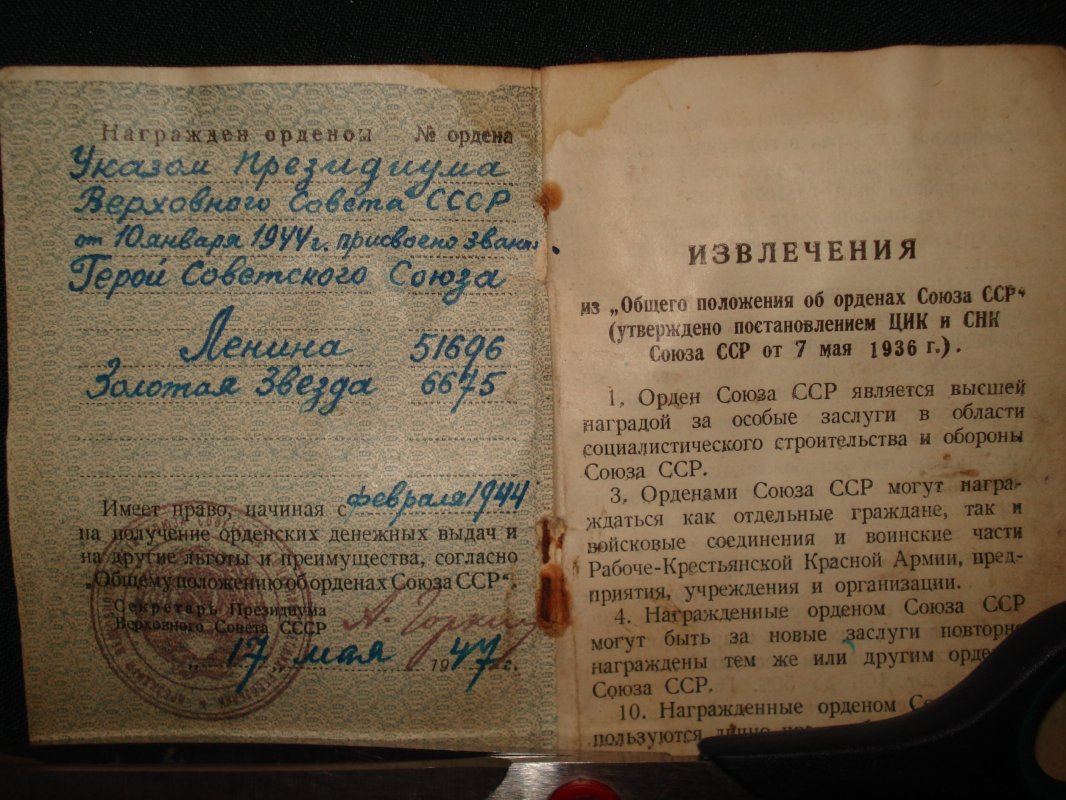 Награжден орденом № ордена
Указом Президиума
Верховного Совета СССР
от 10 января 1944 г. присвоено звани
Герой Советского Союза
Ленина 51696
Золотая Звезда 6675
Имеет право, начиная с февраля 1944
на получение орденских денежных выдач и
на другие льготы и преимущества, согласно
„Общему положению об орденах Союза ССР“.
Секретарь Президиума
Верховного Совета СССР А. Горкин
„17„ мая 1947 г.
ИЗВЛЕЧЕНИЯ
из „Общего положения об орденах Союза ССР“
(утверждено постановлением ЦИК и СНК
Союза ССР от 7 мая 1936 г.).
1. Орден Союза ССР является высшей
наградой за особые заслуги в области
социалистического строительства и обороны
Союза ССР.
3. Орденами Союза ССР могут награ-
ждаться как отдельные граждане, так и
войсковые соединения и воинские части
Рабоче-Крестьянской Красной Армии, пред-
приятия, учреждения и организации.
4. Награжденные орденом Союза ССР
могут быть за новые заслуги повторно
награждены тем же или другим орде
Союза ССР.
10. Награжденные орденом Со
пользуются лично